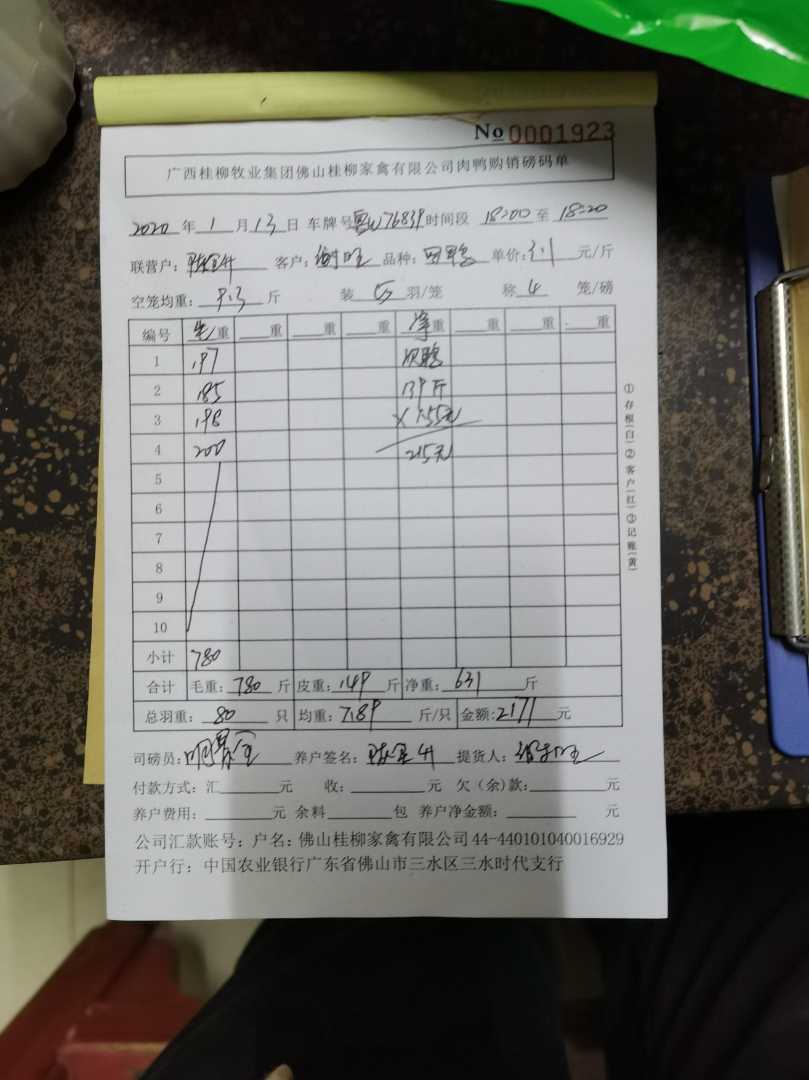 No 0001923
广西桂柳牧业集团佛山桂柳家禽有限公司肉鸭购销磅码单
2020 年 1 月 13 日 车牌号 粤W76839 时间段 18:00 至 18:20
联营户： 客户： 品种： 单价: 元/斤
空笼均重： 9.3 斤 装 5 羽/笼 称 4 笼/磅
编号 毛重 重 重 重 净重 重 重 重
1 197
2 185 139斤
3 198 ×1.55元
4 200 215元
5
6
7
8
9
10
小计 780
合计 毛重: 780 斤 皮重: 149 斤 净重: 631 斤
总羽重： 80 只 均重: 7.89 斤/只 金额: 2171 元
司磅员: 养户签名: 提货人:
付款方式: 汇 元 收: 元 欠(余)款: 元
养户费用: 元 余料 包 养户净金额: 元
公司汇款账号：户名：佛山桂柳家禽有限公司 44-440101040016929
开户行：中国农业银行广东省佛山市三水区三水时代支行
①存根(白)②客户(红)③记账(黄)